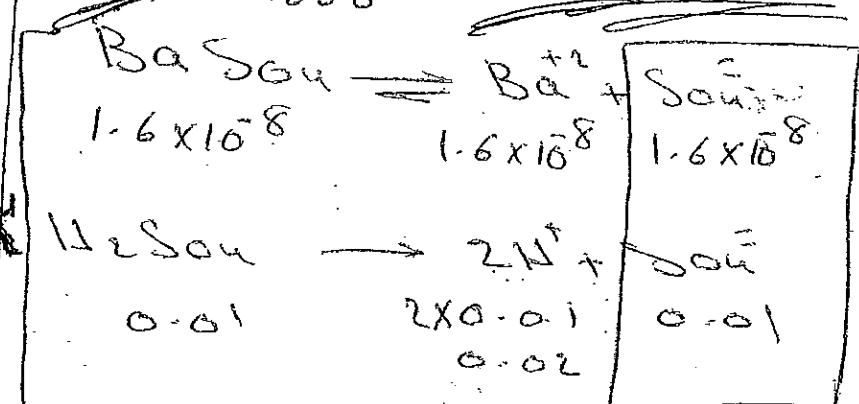 BaSO4 ⇌ Ba+2 + SO4=
1.6 x 10-8 1.6 x 10-8 1.6 x 10-8
H2SO4 → 2H+ + SO4=
0.01 2x0.01 0.01
0.02